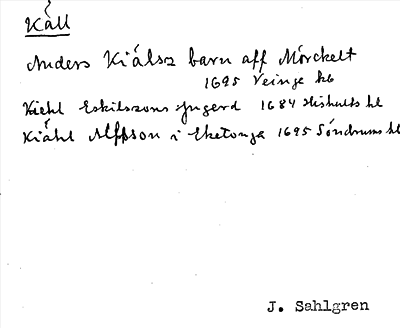 Kåll
Anders Kiålsz barn aff Mörckelt
1695 Veinge kb
Kiehl Eskilszons 1684 Hishults kl
Kiåhl Alfsson i Eketonga 1695 Söndrums kl
J. Sahlgren